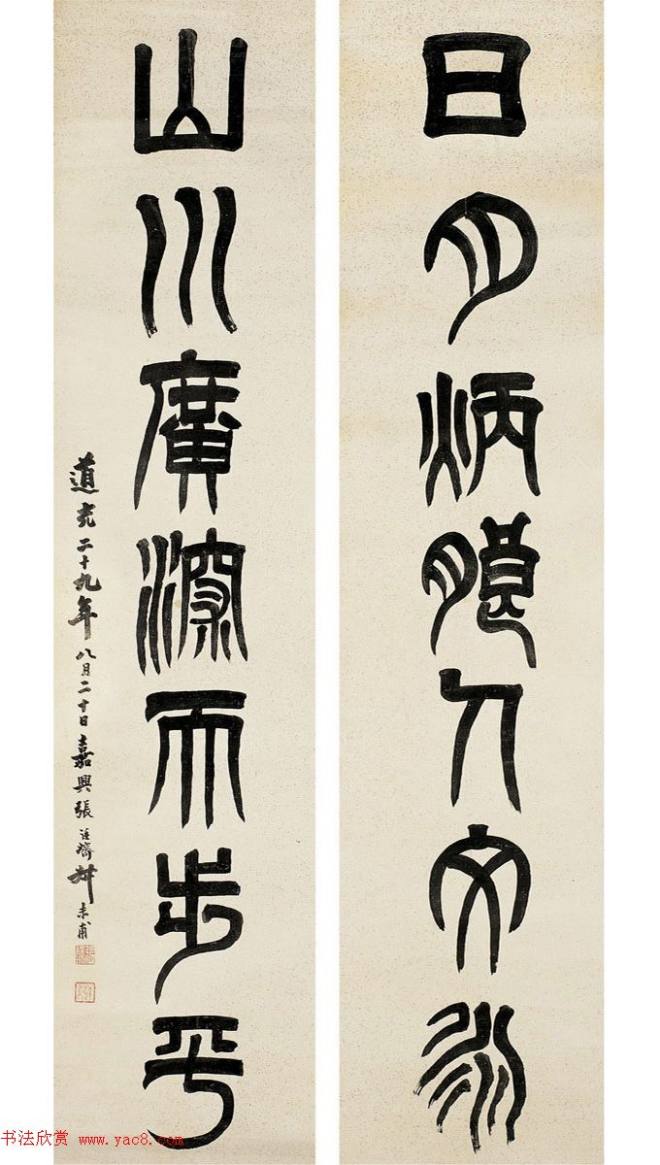 日月炳朗人文永
山川廣深而步平
道光二十九年八月二十日嘉興張廷濟叔未甫
书法欣赏 www.yac8.com